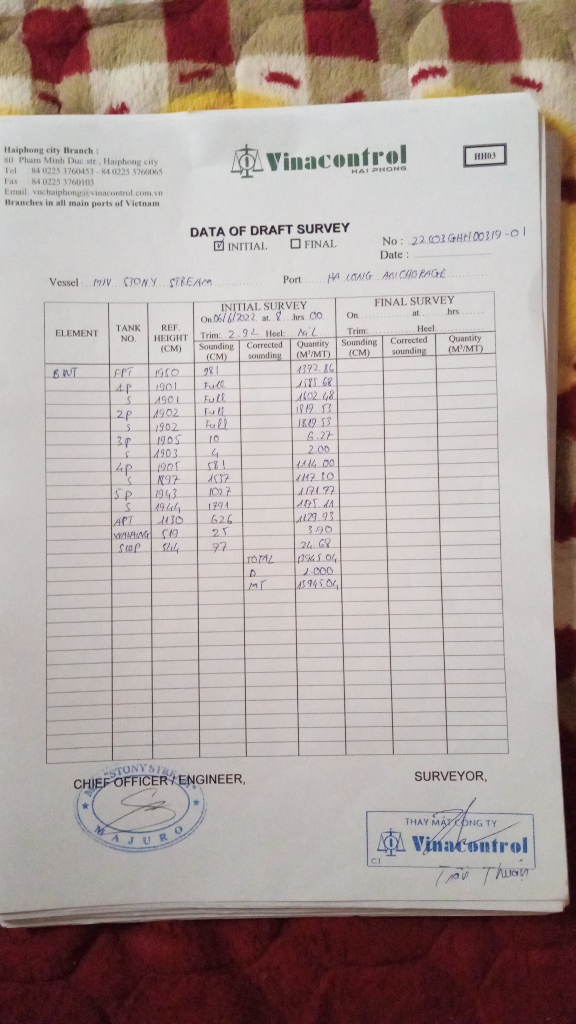 Haiphong city Branch :
80 Pham Minh Duc str., Haiphong city
Tel 84 0225 3760453 - 84 0225 3760065
Fax 84 0225 3760103
Email: vnchaiphong@vinacontrol.com.vn
Branches in all main ports of Vietnam
Vinacontrol
HAI PHONG
HH03
DATA OF DRAFT SURVEY
☑ INITIAL ☐ FINAL
No : 22G03GHH00319-01
Date :
Vessel M/V STONY STREAM Port HA LONG ANCHORAGE
ELEMENT TANK NO. REF. HEIGHT (CM) INITIAL SURVEY FINAL SURVEY
On 06/6/2022 at 8 hrs 00 On at hrs
Trim: 2.92 Heel: Nil Trim: Heel
Sounding (CM) Corrected sounding Quantity (M³/MT) Sounding (CM) Corrected sounding Quantity (M³/MT)
BWT FPT 1950 981 1372.86
1P 1901 Full 1585.68
S 1901 Full 1602.48
2P 1902 Full 1819.53
S 1902 Full 1819.53
3P 1905 10 6.27
S 1903 4 2.00
4P 1905 581 1114.00
S 1897 1537 1117.30
5P 1943 1027 1171.77
S 1944 1791 1175.11
APT 1130 626 1129.93
WASHING 519 25 3.90
544 77 24.68
TOTAL 13945.04
D 1.000
MT 13945.04
CHIEF OFFICER / ENGINEER,
SURVEYOR,
"STONY STREAM"
MAJURO
THAY MẶT CÔNG TY
Vinacontrol
C1
Trần Thuận